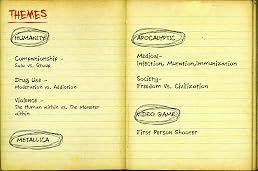 THEMES
HUMANITY
Companionship -
Solo vs. Group
Drug Use -
Moderation vs. Addiction
Violence -
The Human within vs. The Monster
within
METALLICA
APOCALYPTIC
Medical-
Infection, Mutation, Immunization
Society-
Freedom Vs. Civilization
VIDEO GAME
First Person Shooter